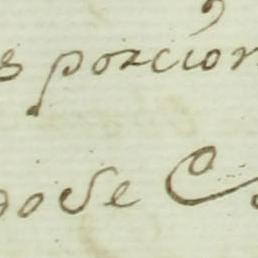 s porcion
dose C